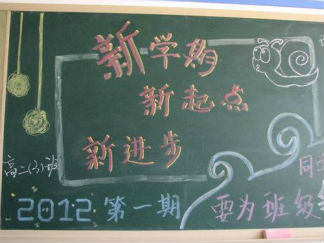 新学期
新起点
新进步
高二(3)班
2012 第一期
要为班级
同